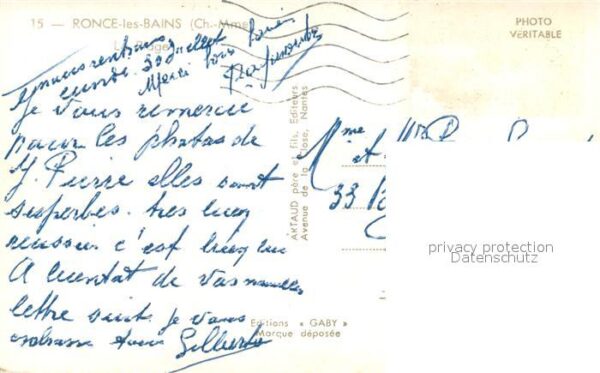 15 — RONCE-les-BAINS (Ch.-Mme)
PHOTO
VÉRITABLE
nous rentrons
lundi 30 juillet
Merci pour
Je vous remercie
pour les photos de
J. Pierre elles sont
superbes. très bien
réussi c'est bien lui
A bientôt de vos nouvelles
lettre suit. je vous
embrasse Gilberte
ARTAUD père et fils, Editeurs
Avenue de la Close, Nantes
Mme
et
33
privacy protection
Datenschutz
Editions « GABY »
Marque déposée